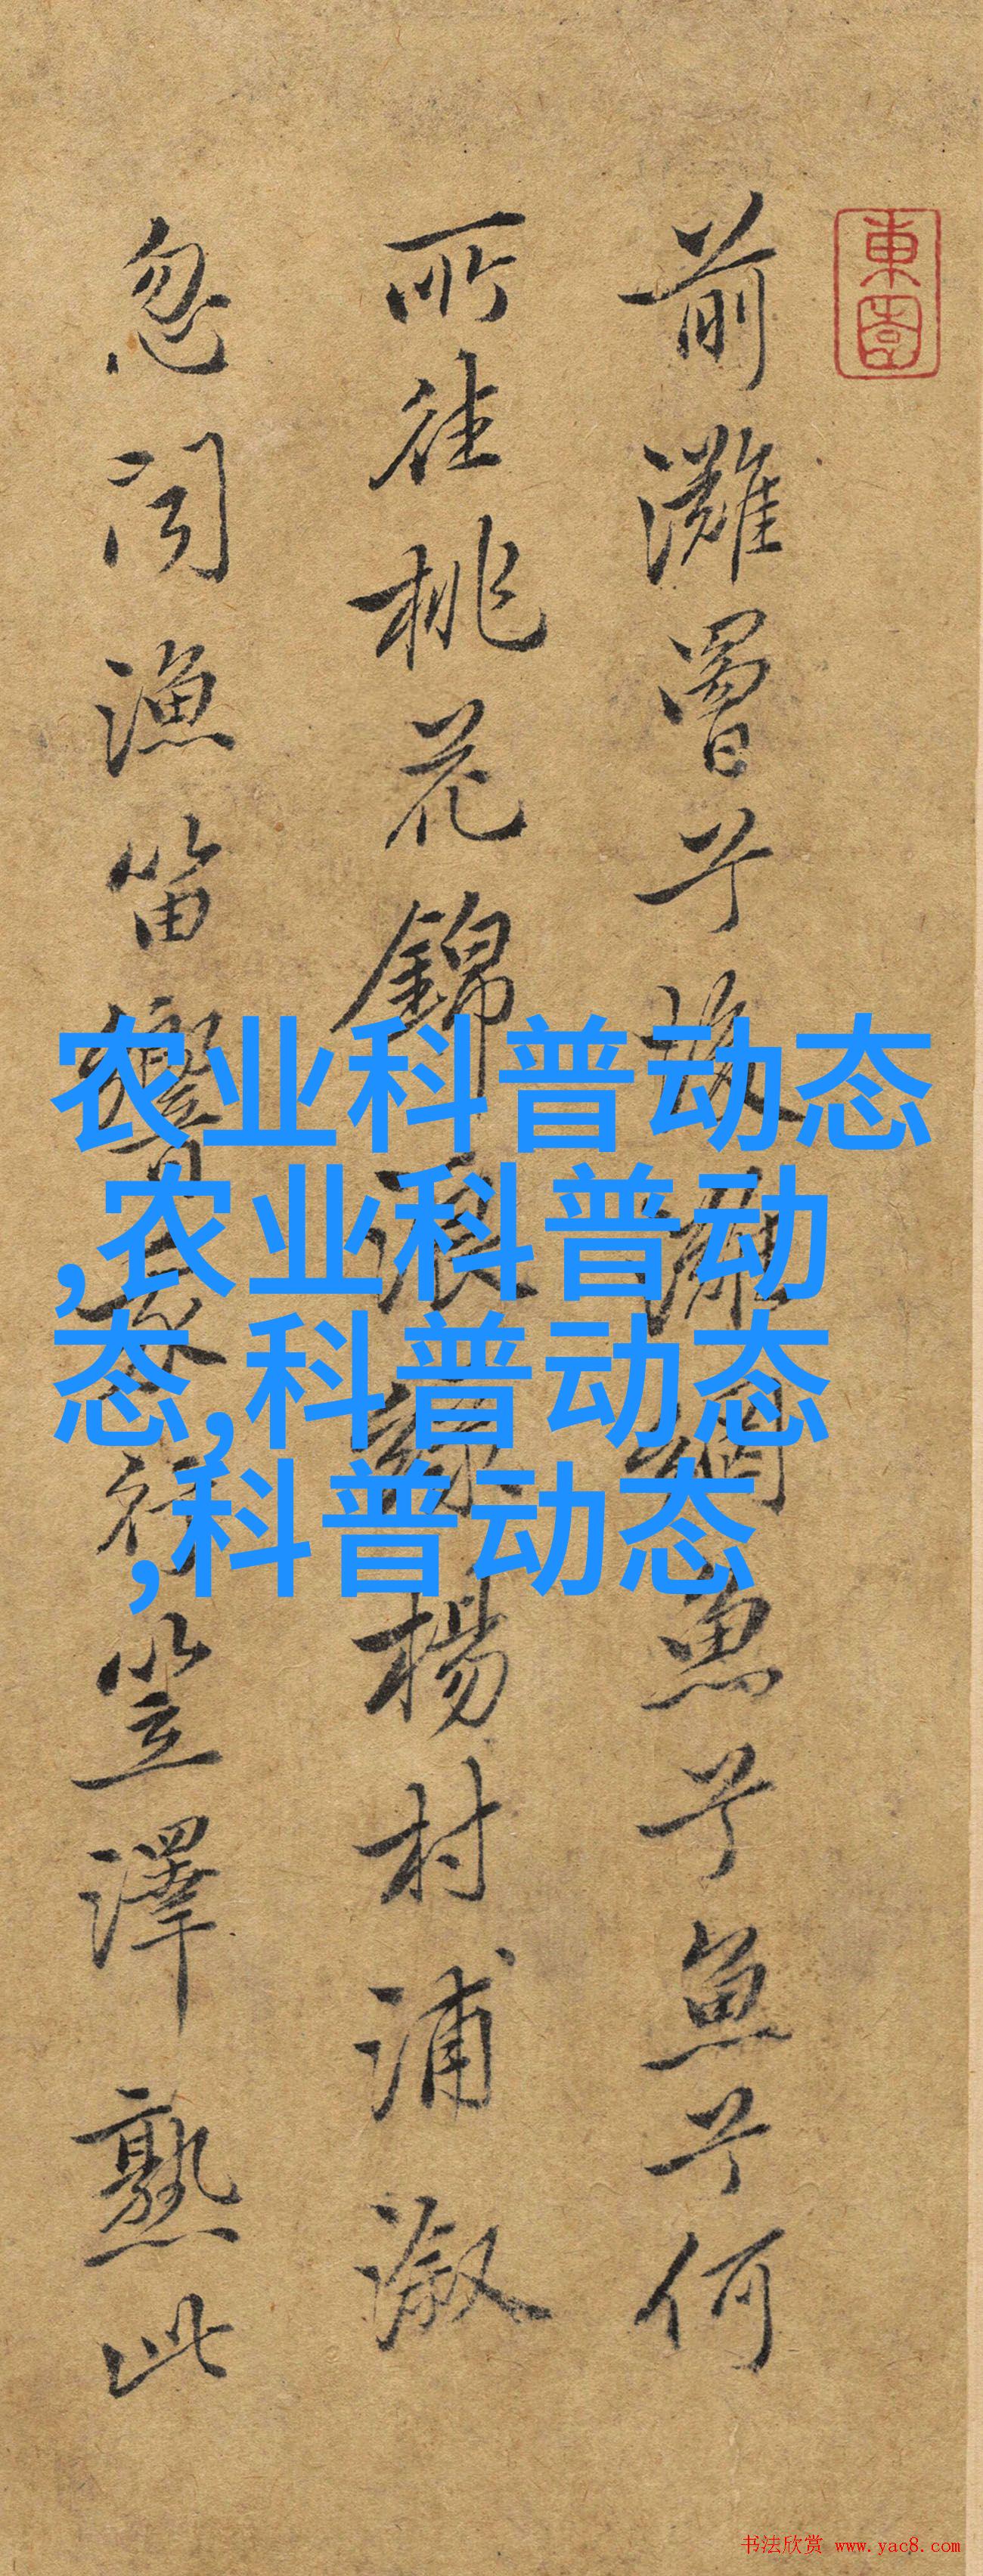 東園
前灘罾兮後灘網魚兮魚兮何
所往桃花錦浪綠楊村浦漵
忽聞漁笛響我行笠澤熟此
农业科普动态
,农业科普动
态,科普动态
,科普动态
书法欣赏 www.yac8.com